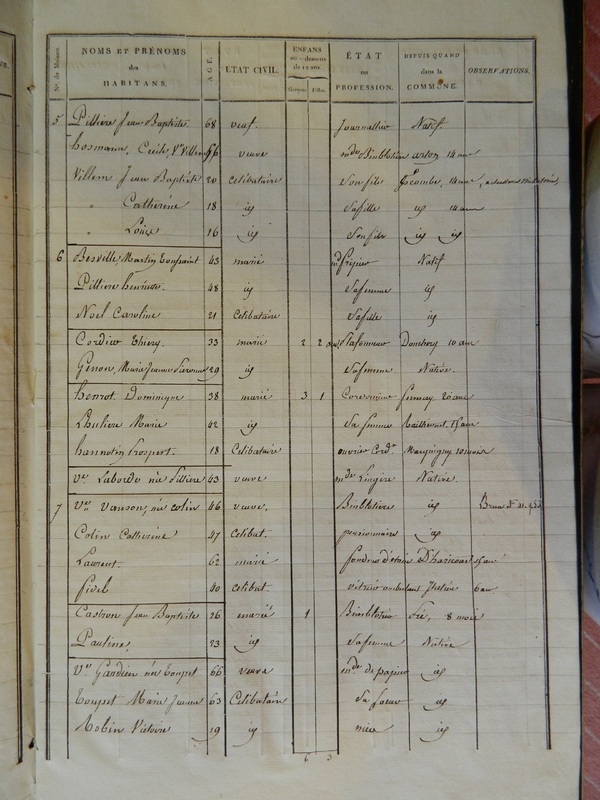 Nos. de Maisons.
NOMS ET PRÉNOMS des HABITANS.
AGE.
ETAT CIVIL.
ENFANS au-dessous de 12 ans.
Garçons. Filles.
ÉTAT ou PROFESSION.
DEPUIS QUAND dans la COMMUNE.
OBSERVATIONS.
5 Pilliere Jean Baptiste. 68 veuf. Journallier Natif.
hosmann, Cécile, Ve Villem 56 veuve mde Bimblotière arlon 14 ans
Villem Jean Baptiste 20 Celibataire Son fils 14 ans
" Catherine 18 id Safille id 14 ans
" Louis 16 id Son fils id id
6 Besville, Martin Toussaint 43 marié fripier Natif
Pilliere henriette. 48 id Safemme id
Noel Caroline 21 Celibataire Safille id
Cordier Thiery. 33 marié 2 2 Plafonneur Donchery 10 ans
Genon, Marie Jeanne 29 id Safemme Native.
henrot Dominique 38 marié 3 1 fumay 20 ans
Lhuliere Marie 42 id Sa femme 15 ans
hannotin Prospert. 18 Celibataire ouvrier Cordr 10 mois
Ve Laborde née Pilliere 43 veuve mde Lingère Native.
7 Ve Vanson, née Colin 46 veuve. Bimblotière id
Colin Catherine 47 Celibat. pensionnaire id
Laurent. 62 marié fondeur d'étain D'haricourt 15 ans
fidel 40 Celibat. vitrier ambulant 6 ans
Castron Jean Baptiste 26 marié 1 Bimblotier 8 mois
Pauline, 23 id Safemme Native
Ve Gardien née Toupet 66 veuve mde de papier id
Toupet Marie Jeanne 63 Celibataire Sa soeur id
Robin Victoire 19 id niece id
6 3